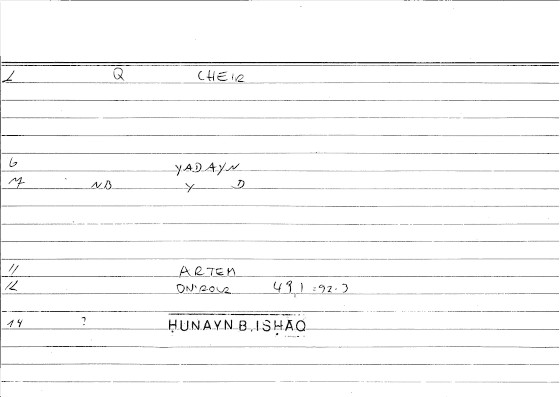 1 Q CHEIR
6 YADAYN
7 NB Y D
11 ARTEM
12 ONIROCR 49,1 = 92.3
14 ? ḤUNAYN B. ISḤĀQ